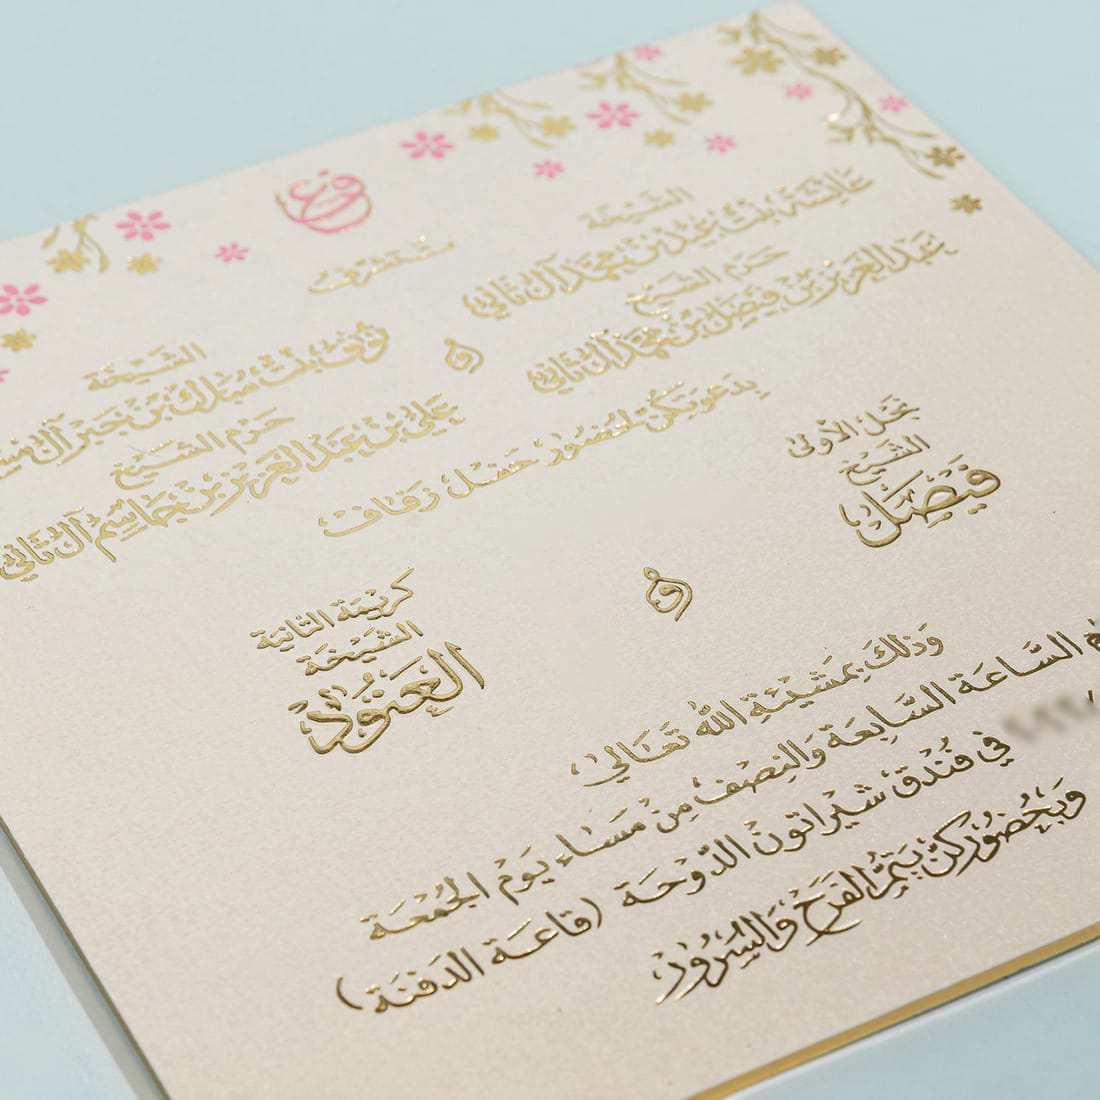 تتشرف
الشيخة
عائشة بنت عيد بن محمد آل ثاني
حرم الشيخ
عبدالعزيز بن فيصل بن محمد آل ثاني
و
الشيخة
نوف بنت مبارك بن جبر آل
حرم الشيخ
علي بن عبدالعزيز بن جاسم آل ثاني
بدعوتكن لحضور حفل زفاف
نجل الأولى
الشيخ
فيصل
و
كريمة الثانية
الشيخة
العنود
وذلك بمشيئة الله تعالى
الساعة السابعة والنصف من مساء يوم الجمعة
في فندق شيراتون الدوحة (قاعة الدفنة)
وبحضوركن يتم الفرح والسرور